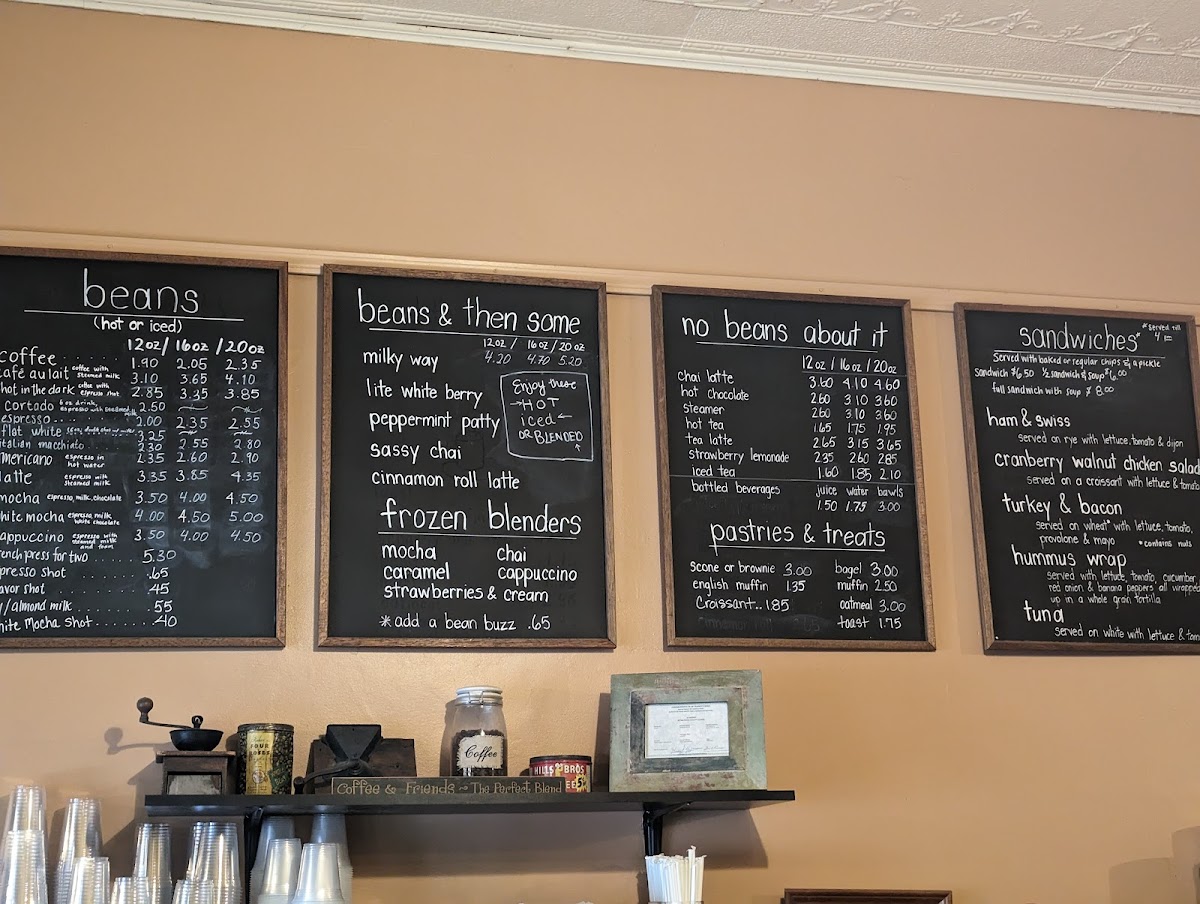 beans
(hot or iced)
12oz / 16oz / 20oz
coffee ...... 1.90 2.05 2.35
café au lait coffee with steamed milk 3.10 3.65 4.10
hot in the dark coffee with espresso shot 2.85 3.35 3.85
cortado 6 oz drink, espresso with steamed milk 2.50
espresso 2.00 2.35 2.55
flat white 3.25
italian macchiato 2.30 2.55 2.80
mericano espresso in hot water 2.35 2.60 2.90
latte espresso with steamed milk 3.35 3.85 4.35
mocha espresso, milk, chocolate 3.50 4.00 4.50
hite mocha espresso, milk, white chocolate 4.00 4.50 5.00
appuccino espresso with steamed milk and foam 3.50 4.00 4.50
rench press for two 5.30
presso shot .65
avor shot .45
y/almond milk .55
hite mocha shot .40
beans & then some
12oz / 16oz / 20oz
milky way 4.20 4.70 5.20
lite white berry
peppermint patty
sassy chai
cinnamon roll latte
Enjoy these
→ HOT
iced ←
OR BLENDED
frozen blenders
mocha chai
caramel cappuccino
strawberries & cream
*add a bean buzz .65
no beans about it
12oz / 16oz / 20oz
chai latte 3.60 4.10 4.60
hot chocolate 2.60 3.10 3.60
steamer 2.60 3.10 3.60
hot tea 1.65 1.75 1.95
tea latte 2.65 3.15 3.65
strawberry lemonade 2.35 2.60 2.85
iced tea 1.60 1.85 2.10
bottled beverages juice water bawls
1.50 1.75 3.00
pastries & treats
scone or brownie 3.00 bagel 3.00
english muffin 1.35 muffin 2.50
Croissant..1.85 oatmeal 3.00
toast 1.75
sandwiches* *served till 4
served with baked or regular chips & a pickle
sandwich $6.50 ½ sandwich & soup $6.00
full sandwich with soup $8.00
ham & swiss
served on rye with lettuce, tomato & dijon
cranberry walnut chicken salad
served on a croissant with lettuce & tomato
turkey & bacon
served on wheat* with lettuce, tomato,
provolone & mayo *contains nuts
hummus wrap
served with lettuce, tomato, cucumber
red onion & banana peppers all wrapped
up in a whole grain tortilla
tuna
served on white with lettuce & tom
FOUR
Coffee
HILLS BROS
Coffee & Friends ~ The Perfect Blend